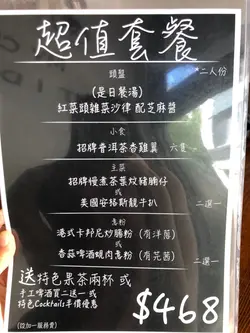 超值套餐
頭盤
*二人份
(是日餐湯)
紅菜頭雜菜沙律 配芝麻醬
小食
招牌普洱茶香雞翼 六隻
主菜
招牌慢煮茶葉炆豬腩仔
或
美國安格斯靚牛扒
二選一
意粉
港式卡邦尼炒腸粉 (有洋蔥)
或
香蒜啤酒蜆肉意粉 (有芫茜)
二選一
送 特色果茶兩杯 或
手工啤酒買二送一 或
特色Cocktails半價優惠
(設加一服務費)
$468